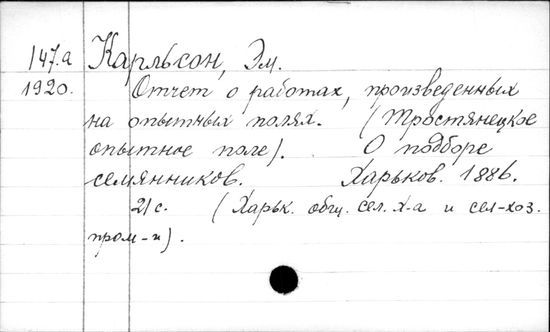 147.а Карльсон, Эм.
1920. Отчет о работах, произведенных
на опытных полях. (Тростянецкое
опытное поле). О подборе
семянников. Харьков. 1886.
21 с. (Харьк. общ. сел. х-а и сел-хоз.
пром-и).